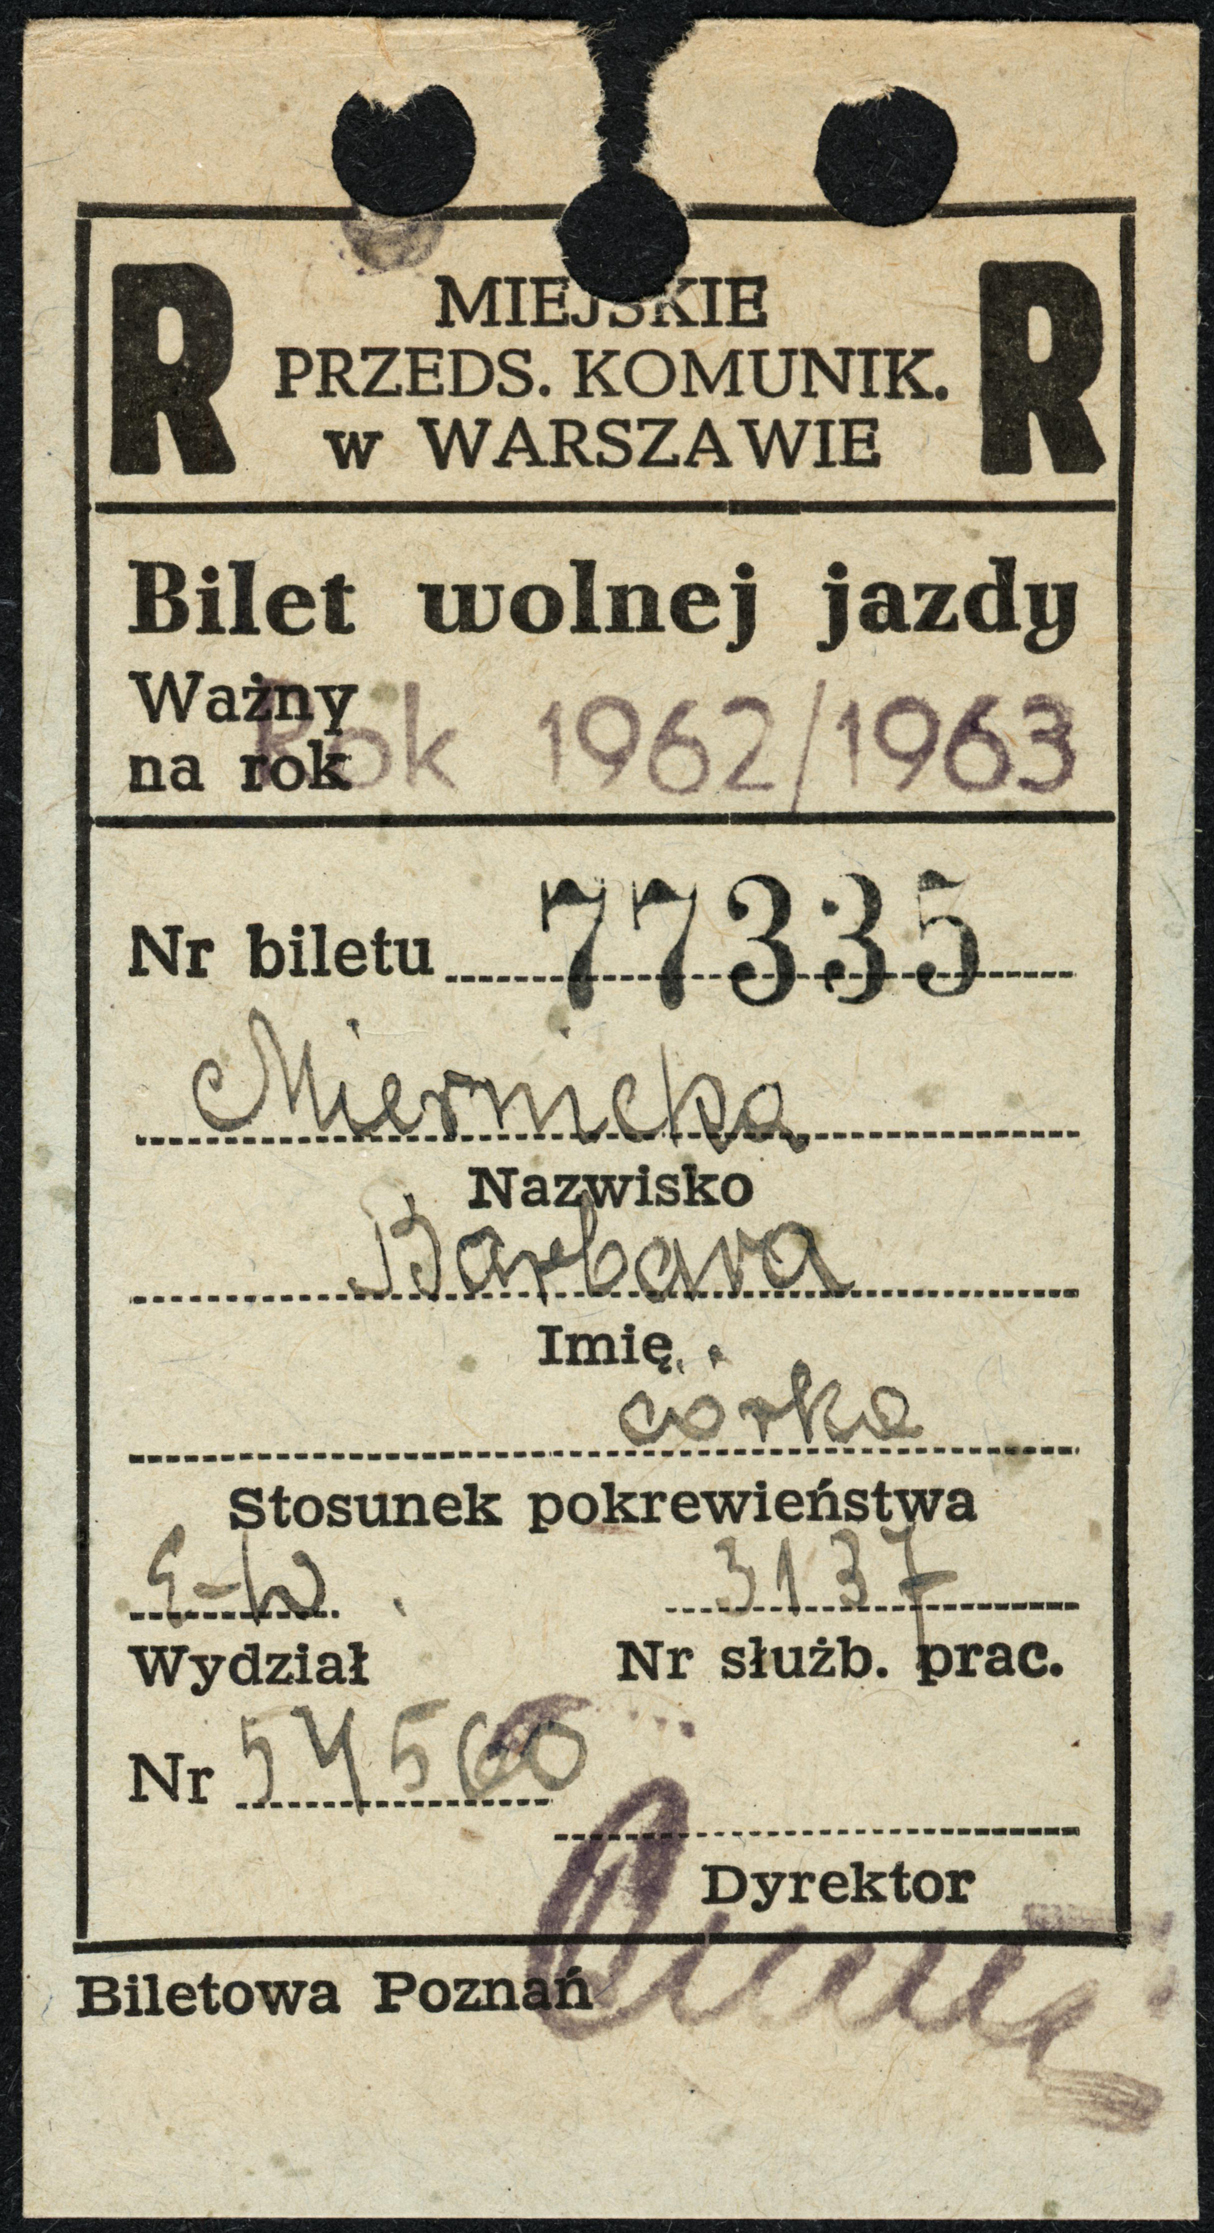 R MIEJSKIE R
PRZEDS. KOMUNIK.
w WARSZAWIE
Bilet wolnej jazdy
Ważny
na rok
Rok 1962/1963
Nr biletu 77335
Miernicka
Nazwisko
Barbara
Imię
córka
Stosunek pokrewieństwa
E-W 3137
Wydział Nr służb. prac.
Nr 54560
Dyrektor
Biletowa Poznań